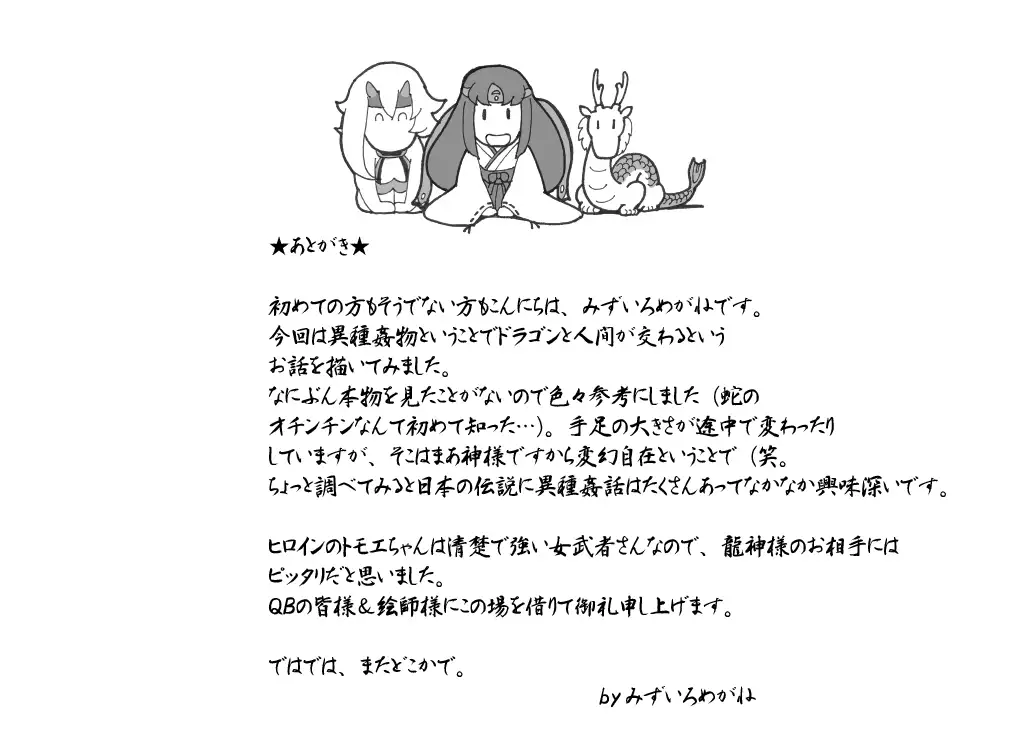 ★あとがき★
初めての方もそうでない方もこんにちは、みずいろめがねです。
今回は異種姦物ということでドラゴンと人間が交わるという
お話を描いてみました。
なにぶん本物を見たことがないので色々参考にしました（蛇の
オチンチンなんて初めて知った…）。手足の大きさが途中で変わったり
していますが、そこはまあ神様ですから変幻自在ということで（笑。
ちょっと調べてみると日本の伝説に異種姦話はたくさんあってなかなか興味深いです。
ヒロインのトモエちゃんは清楚で強い女武者さんなので、龍神様のお相手には
ピッタリだと思いました。
QBの皆様＆絵師様にこの場を借りて御礼申し上げます。
ではでは、またどこかで。
by みずいろめがね